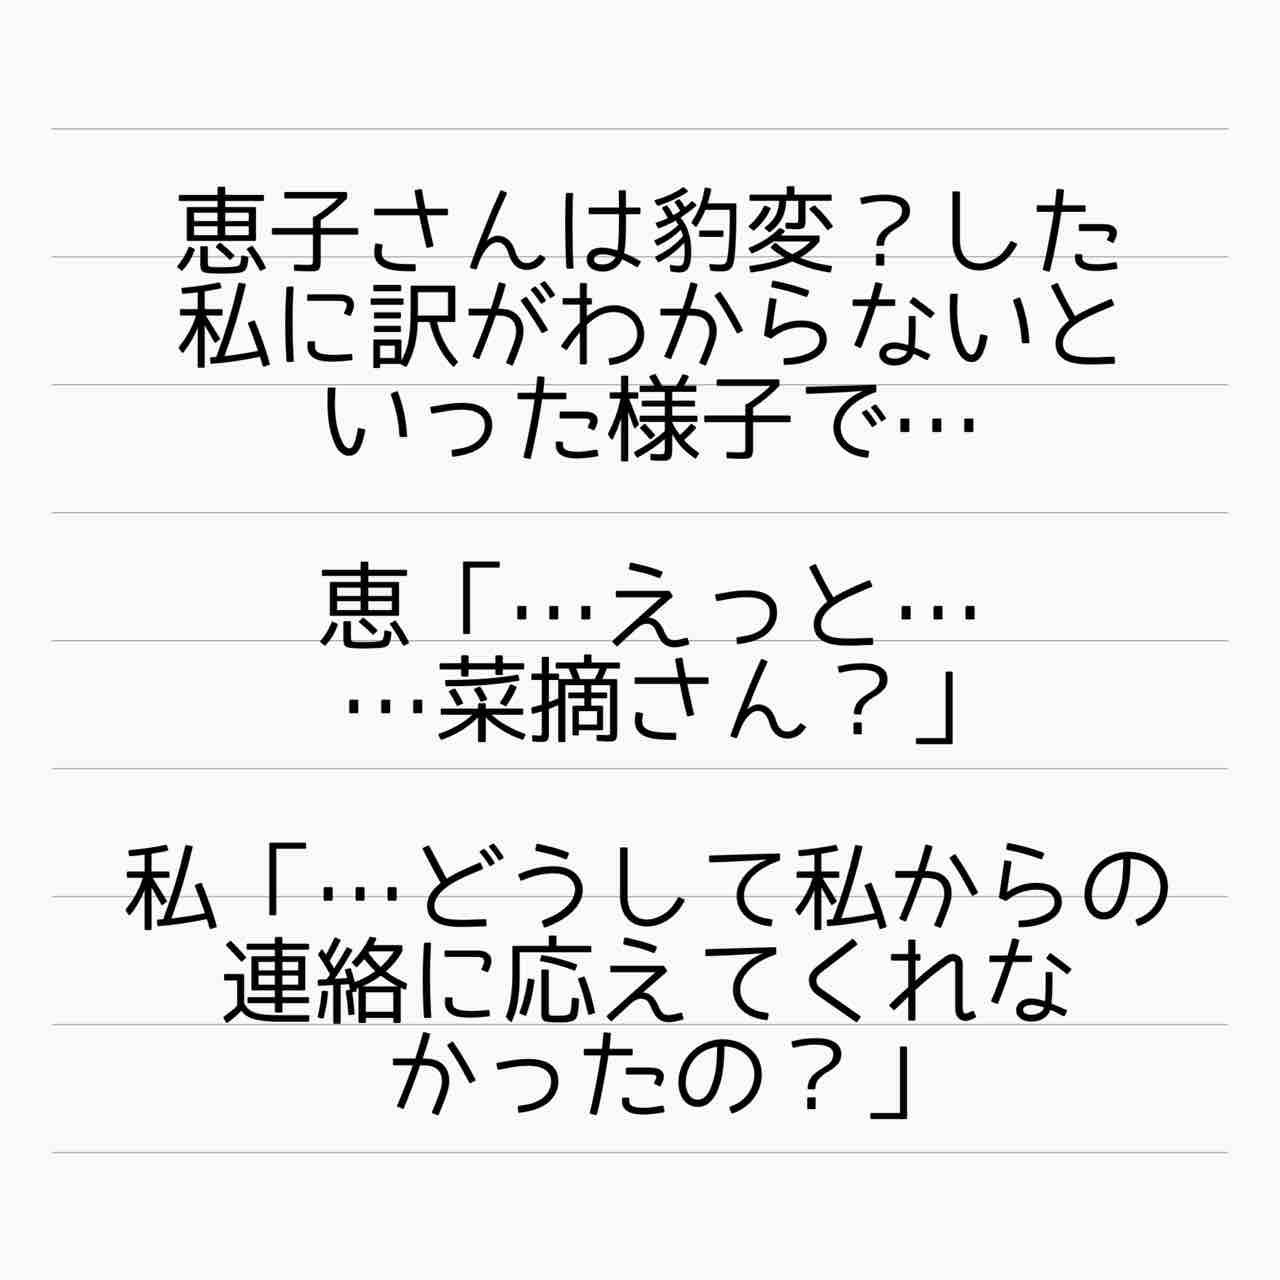 恵子さんは豹変？した
私に訳がわからないと
いった様子で…
恵「…えっと…
…菜摘さん？」
私「…どうして私からの
連絡に応えてくれな
かったの？」